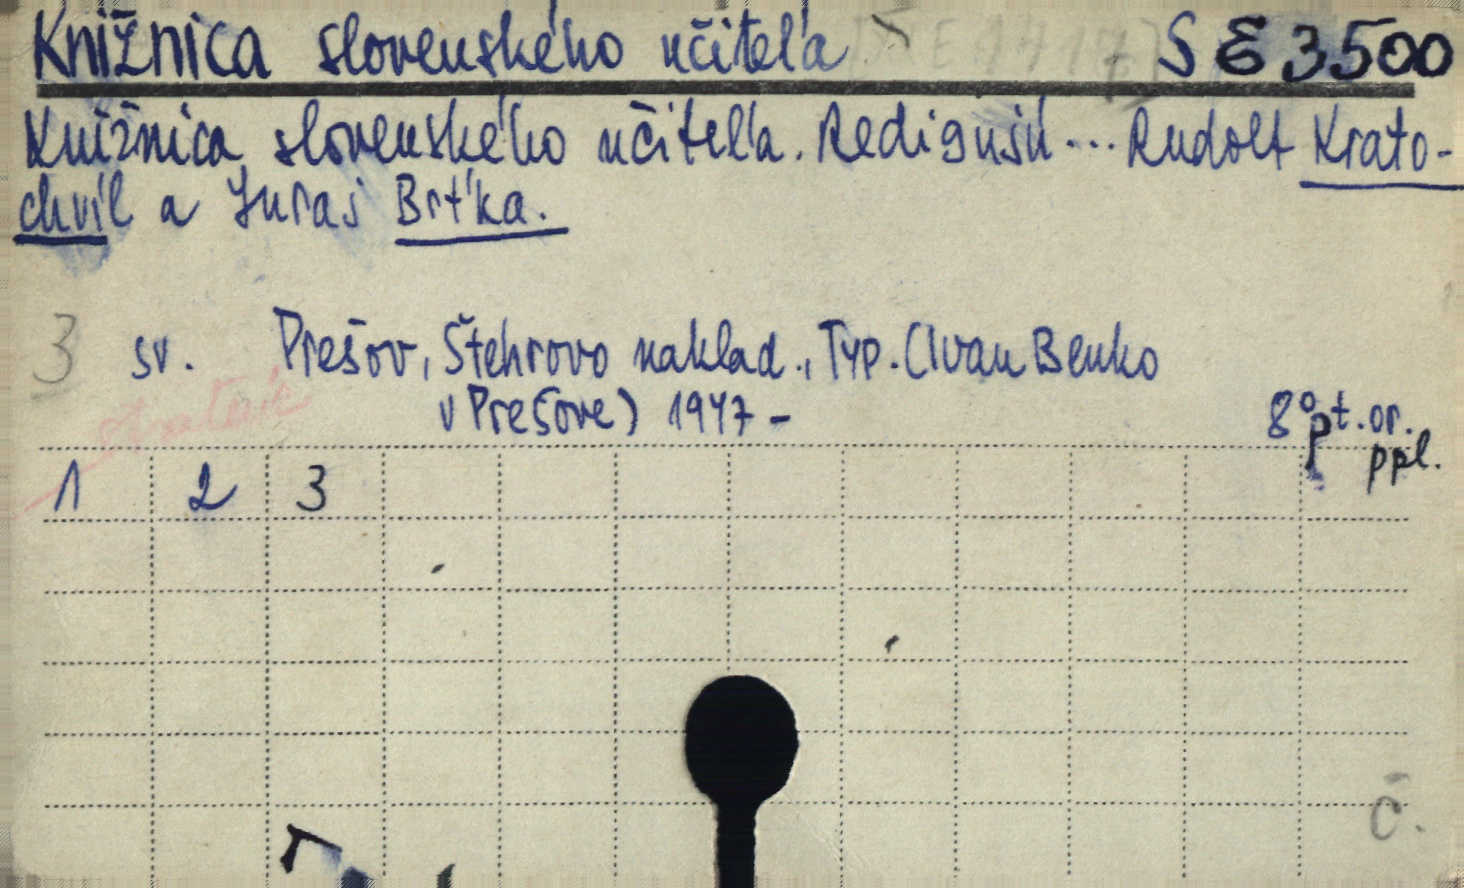 Knižnica slovenského učiteľa S E 3500
Knižnica slovenského učiteľa. Redigujú... Rudolf Krato-
chvíl a Juraj Brťka.
3 sv. Prešov, Štehrovo naklad., Typ. (Ivan Benko
v Prešove) 1947 -
8° pt. or.
ppl.
1 2 3
č.